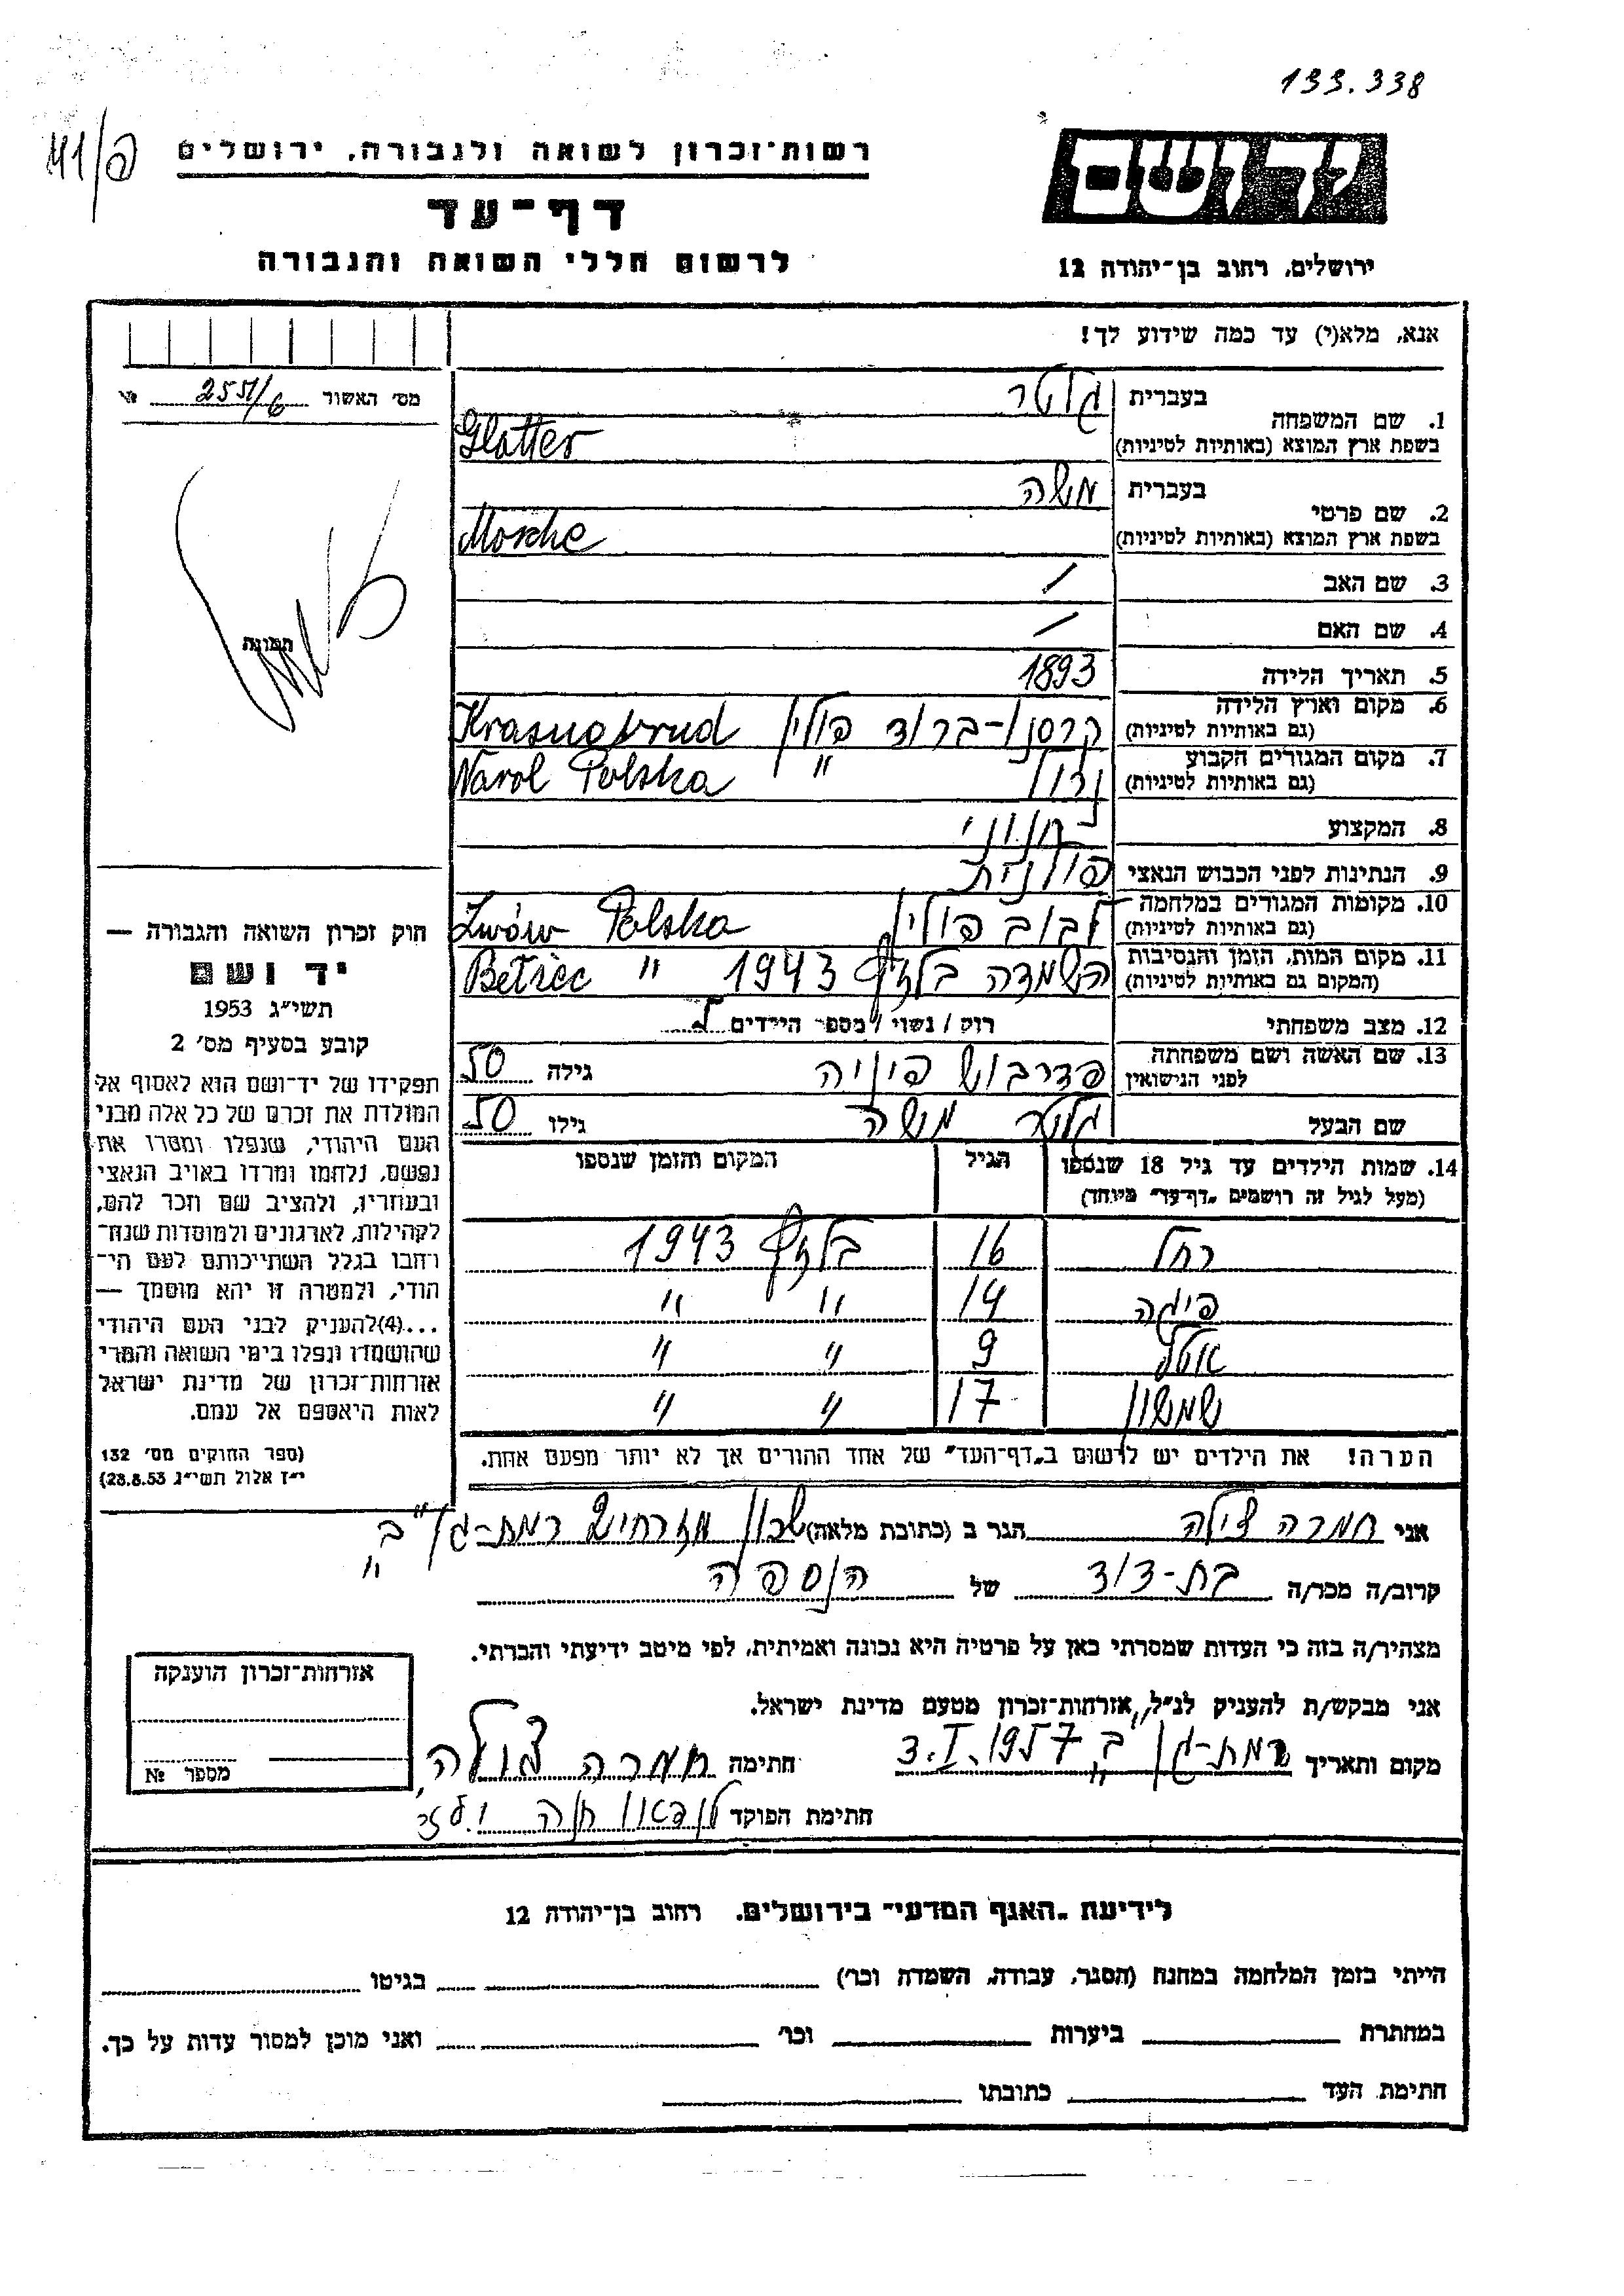 133.338
רשות־זכרון לשואה ולגבורה, ירושלים
דף־עד
לרשום חללי השואה והגבורה
יד ושם
ירושלים, רחוב בן־יהודה 12
אנא, מלא(י) עד כמה שידוע לך!
מס׳ האשור
1. שם המשפחה בעברית גלטר
בשפת ארץ המוצא (באותיות לטיניות) Glatter
2. שם פרטי בעברית משה
בשפת ארץ המוצא (באותיות לטיניות) Mosche
3. שם האב /
4. שם האם /
5. תאריך הלידה 1893
6. מקום וארץ הלידה (גם באותיות לטיניות) קרסנו-ברוד פולין Krasnobrud
7. מקום המגורים הקבוע (גם באותיות לטיניות) נרול " Narol Polska
8. המקצוע חנוני
9. הנתינות לפני הכבוש הנאצי פולנית
10. מקומות המגורים במלחמה (גם באותיות לטיניות) לבוב פולין Lwów Polska
11. מקום המות, הזמן והנסיבות (המקום גם באותיות לטיניות) השמדה בלזץ 1943 " Bełżec
12. מצב משפחתי רוק / נשוי / מספר הילדים
13. שם האשה ושם משפחתה לפני הנישואין פדרבוש פיגה גילה 50
שם הבעל גלטר משה גילו 50
14. שמות הילדים עד גיל 18 שנספו הגיל המקום והזמן שנספו
(מעל לגיל זה רושמים „דף־עד״ מיוחד)
רחל 16 בלזץ 1943
14 " "
9 " "
שמשון 17 " "
הערה! את הילדים יש לרשום ב„דף־העד״ של אחד ההורים אך לא יותר מפעם אחת.
תמונה
חוק זכרון השואה והגבורה —
יד ושם
תשי״ג 1953
קובע בסעיף מס׳ 2
תפקידו של יד־ושם הוא לאסוף אל
המולדת את זכרם של כל אלה מבני
העם היהודי, שנפלו ומסרו את
נפשם, נלחמו ומרדו באויב הנאצי
ובעוזריו, ולהציב שם וזכר להם,
לקהילות, לארגונים ולמוסדות שנח־
רבו בגלל השתייכותם לעם הי־
הודי, ולמטרה זו יהא מוסמך —
...(4)להעניק לבני העם היהודי
שהושמדו ונפלו בימי השואה והמרי
אזרחות־זכרון של מדינת ישראל
לאות היאספם אל עמם.
(ספר החוקים מס׳ 132
י״ז אלול תשי״ג 28.8.53)
אני חמרה צילה הגר ב (כתובת מלאה) שכון מזרחי רמת-גן "ב"
קרוב/ה מכר/ה בת-דוד של הנספה
מצהיר/ה בזה כי העדות שמסרתי כאן על פרטיה היא נכונה ואמיתית, לפי מיטב ידיעתי והכרתי.
אני מבקש/ת להעניק לנ״ל, אזרחות־זכרון מטעם מדינת ישראל.
מקום ותאריך רמת-גן "ב" 3.I.1957 חתימה חמרה צילה
חתימת הפוקד לנדאו חנה
אזרחות־זכרון הוענקה
מספר №
לידיעת „האגף המדעי״ בירושלים, רחוב בן־יהודה 12
הייתי בזמן המלחמה במחנה (הסגר, עבודה, השמדה וכו׳) בגיטו
במחתרת ביערות וכו׳ ואני מוכן למסור עדות על כך.
חתימת העד כתובתו